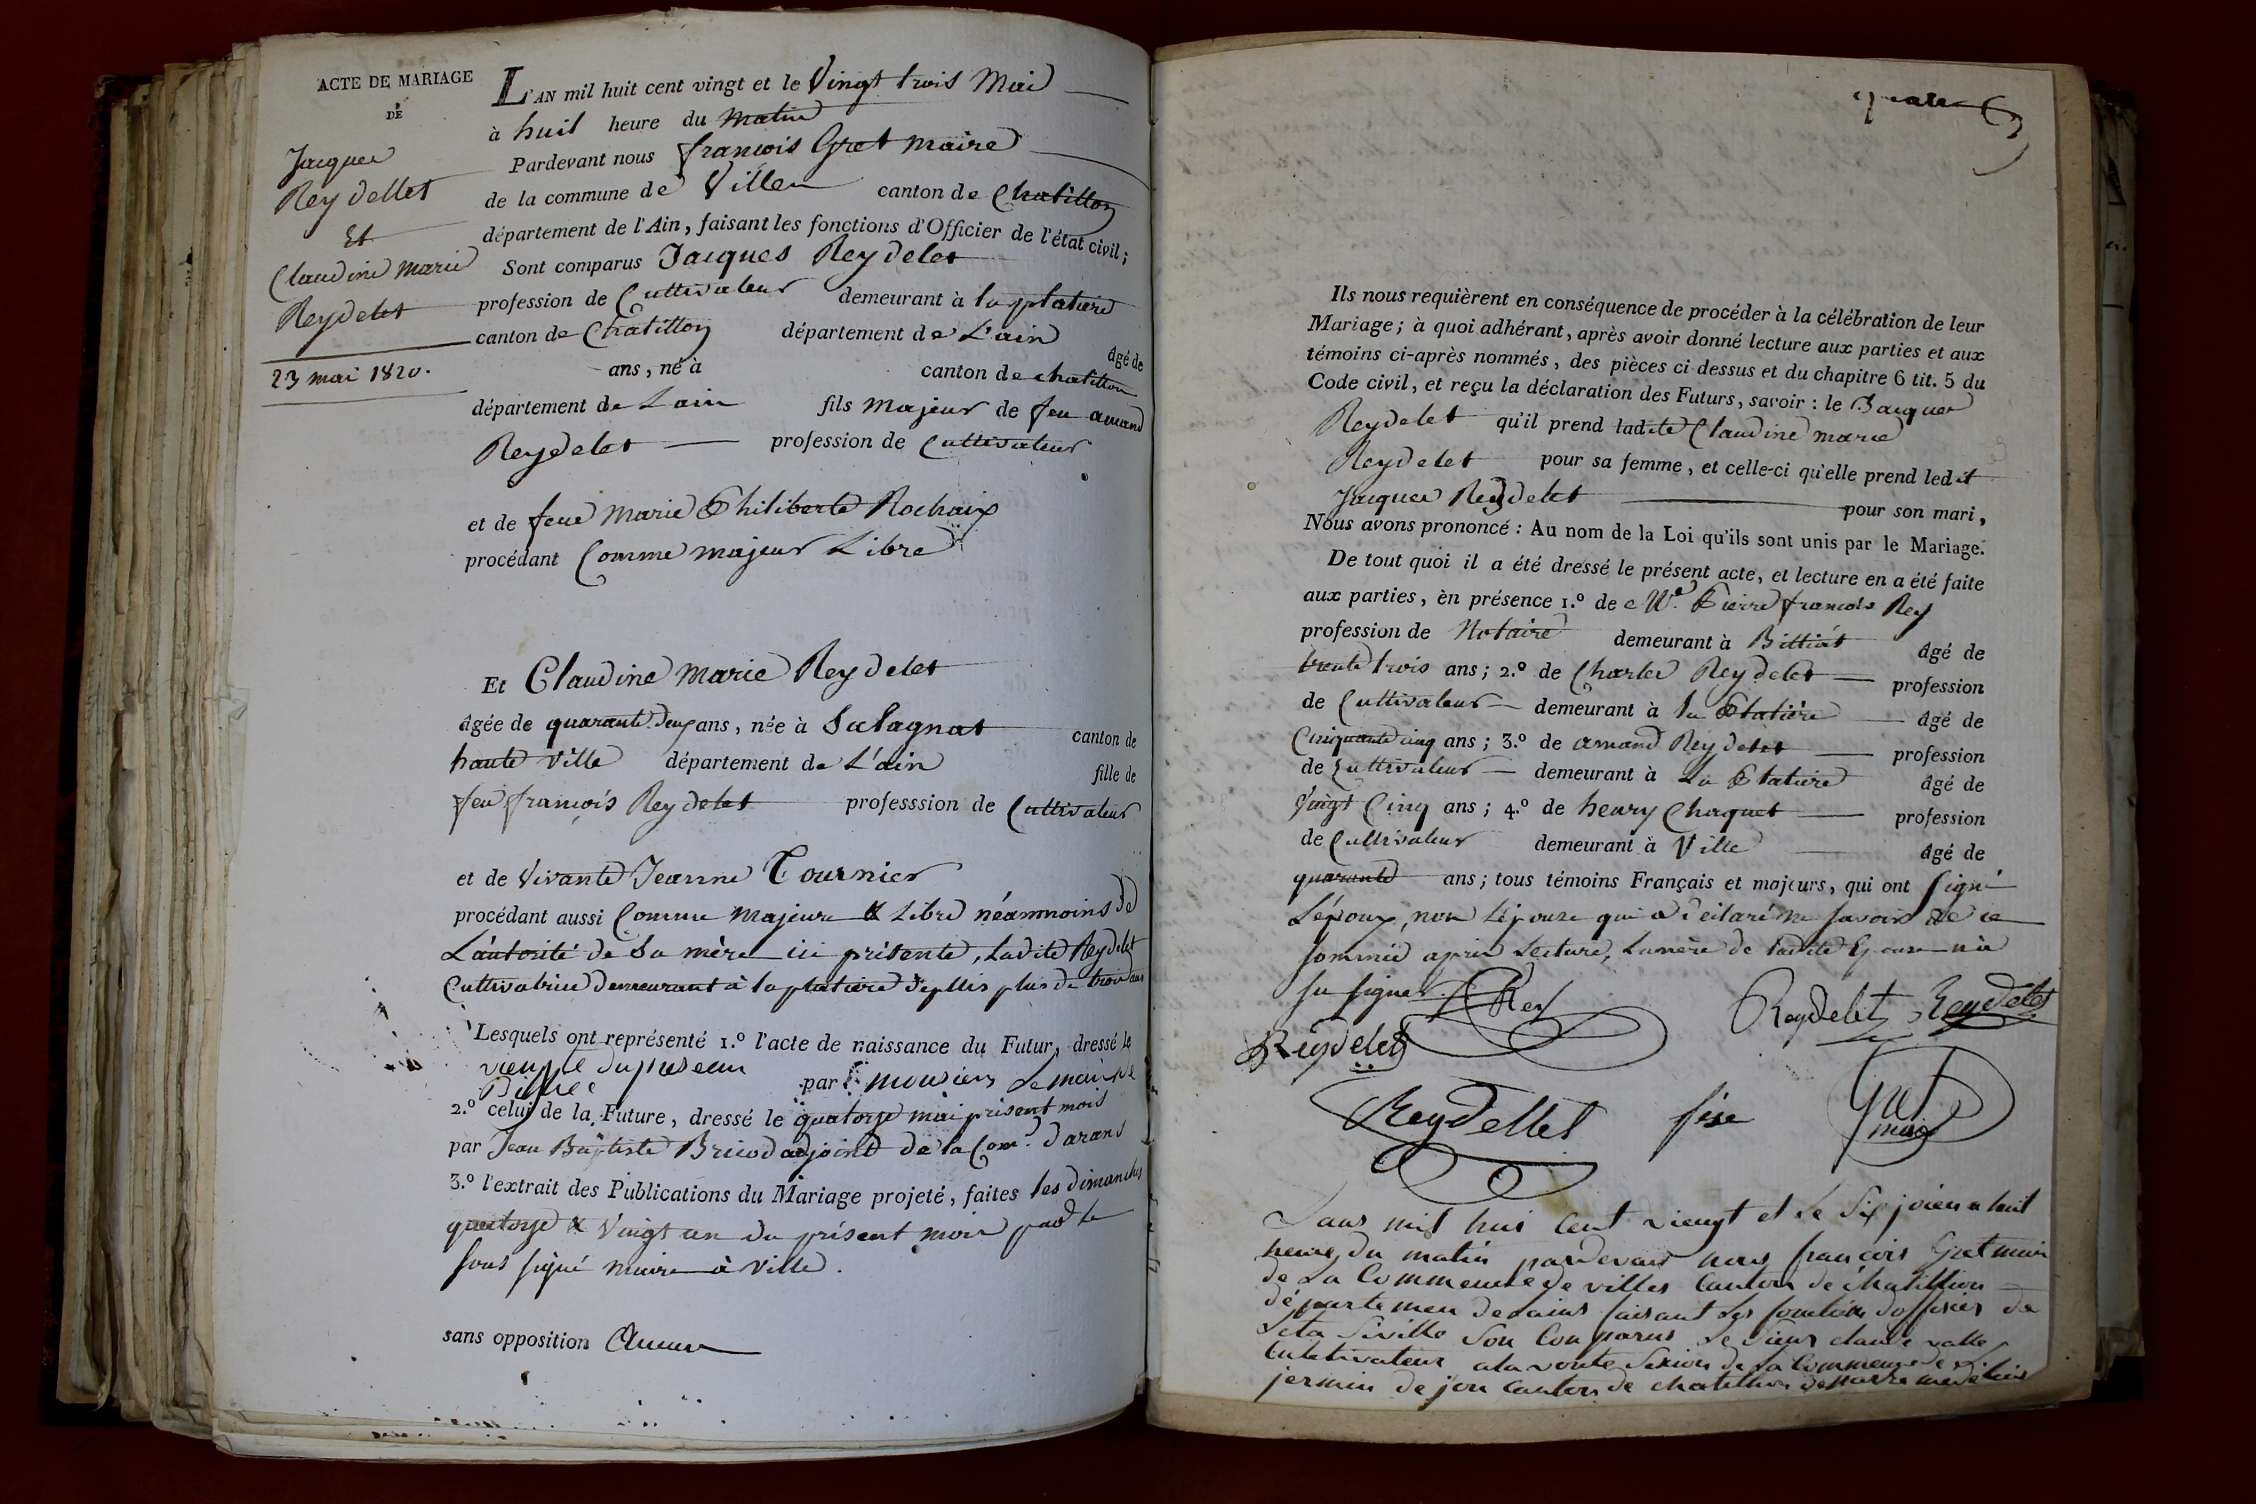 ACTE DE MARIAGE
DE
Jacques
Reydellet
Et
Claudine marie
Reydelet
23 mai 1820.
L'AN mil huit cent vingt et le Vingt trois Mai
à huit heure du Matin
Pardevant nous françois Gret maire
de la commune de Villes canton de Chatillon
département de l'Ain, faisant les fonctions d'Officier de l'état civil;
Sont comparus Jacques Reydelet
profession de Cultivateur demeurant à la platiere
canton de Chatillon département de L'ain âgé de
ans, né à canton de chatillon
département de Lain fils majeur de feu amand
Reydelet profession de Cultivateur
et de feue Marie Philiberte Rochaix
procédant Comme majeur Libre
Et Claudine Marie Reydelet
âgée de quarante deux ans, née à Salagnat canton de
haute Ville département de L'ain fille de
feu françois Reydelet professsion de Cultivateur
et de Vivante Jeanne Tournier
procédant aussi Comme majeure & Libre néammoins de
L'autorité de Sa mère ici présente, Ladite Reydelet
Cultivatrice demeurant à la platiere depuis plus de trois ans
Lesquels ont représenté 1.º l'acte de naissance du Futur, dressé le
par monsieur Le maire
2.º celui de la Future, dressé le quatorze mai présent mois
par Jean Baptiste Bricod adjoint de la Com.e d'arans
3.º l'extrait des Publications du Mariage projeté, faites les dimanches
quatorze & Vingt un du présent mois par le
sous signé maire à Ville.
sans opposition Aucune
quatre
Ils nous requièrent en conséquence de procéder à la célébration de leur
Mariage; à quoi adhérant, après avoir donné lecture aux parties et aux
témoins ci-après nommés, des pièces ci dessus et du chapitre 6 tit. 5 du
Code civil, et reçu la déclaration des Futurs, savoir: le Jacques
Reydelet qu'il prend ladite Claudine marie
Reydelet pour sa femme, et celle-ci qu'elle prend ledit
Jacques Reydelet pour son mari,
Nous avons prononcé: Au nom de la Loi qu'ils sont unis par le Mariage.
De tout quoi il a été dressé le présent acte, et lecture en a été faite
aux parties, èn présence 1.º de Me. Pierre françois Rey
profession de Notaire demeurant à Billiat âgé de
trente trois ans; 2.º de Charles Reydelet profession
de Cultivateur demeurant à la Platière âgé de
Cinquante cinq ans; 3.º de amand Reydelet profession
de Cultivateur demeurant à La Platiere âgé de
Vingt Cinq ans; 4.º de henry Chaquet profession
de Cultivateur demeurant à Ville âgé de
quarante ans; tous témoins Français et majeurs, qui ont Signé
L'époux, non L'épouse qui a déclaré ne savoir de ce
sommée après Lecture, La mère de ladite Epouse n'a
su signer. Rey Reydelet Reydelet
Reydelet
Reydellet Gret
maire
L'ans mil hui cent viengt et le six joien a huit
heure du matin pardevans nous françois Gret maire
de la Commeune de villes canton de chatillion
département delains faisant les fonction doffisier de
Leta Siville Son Conparus le sieur claude
Cultivateur a la voute Sexion de la Commeune de St
jermin de jou canton de chatillion